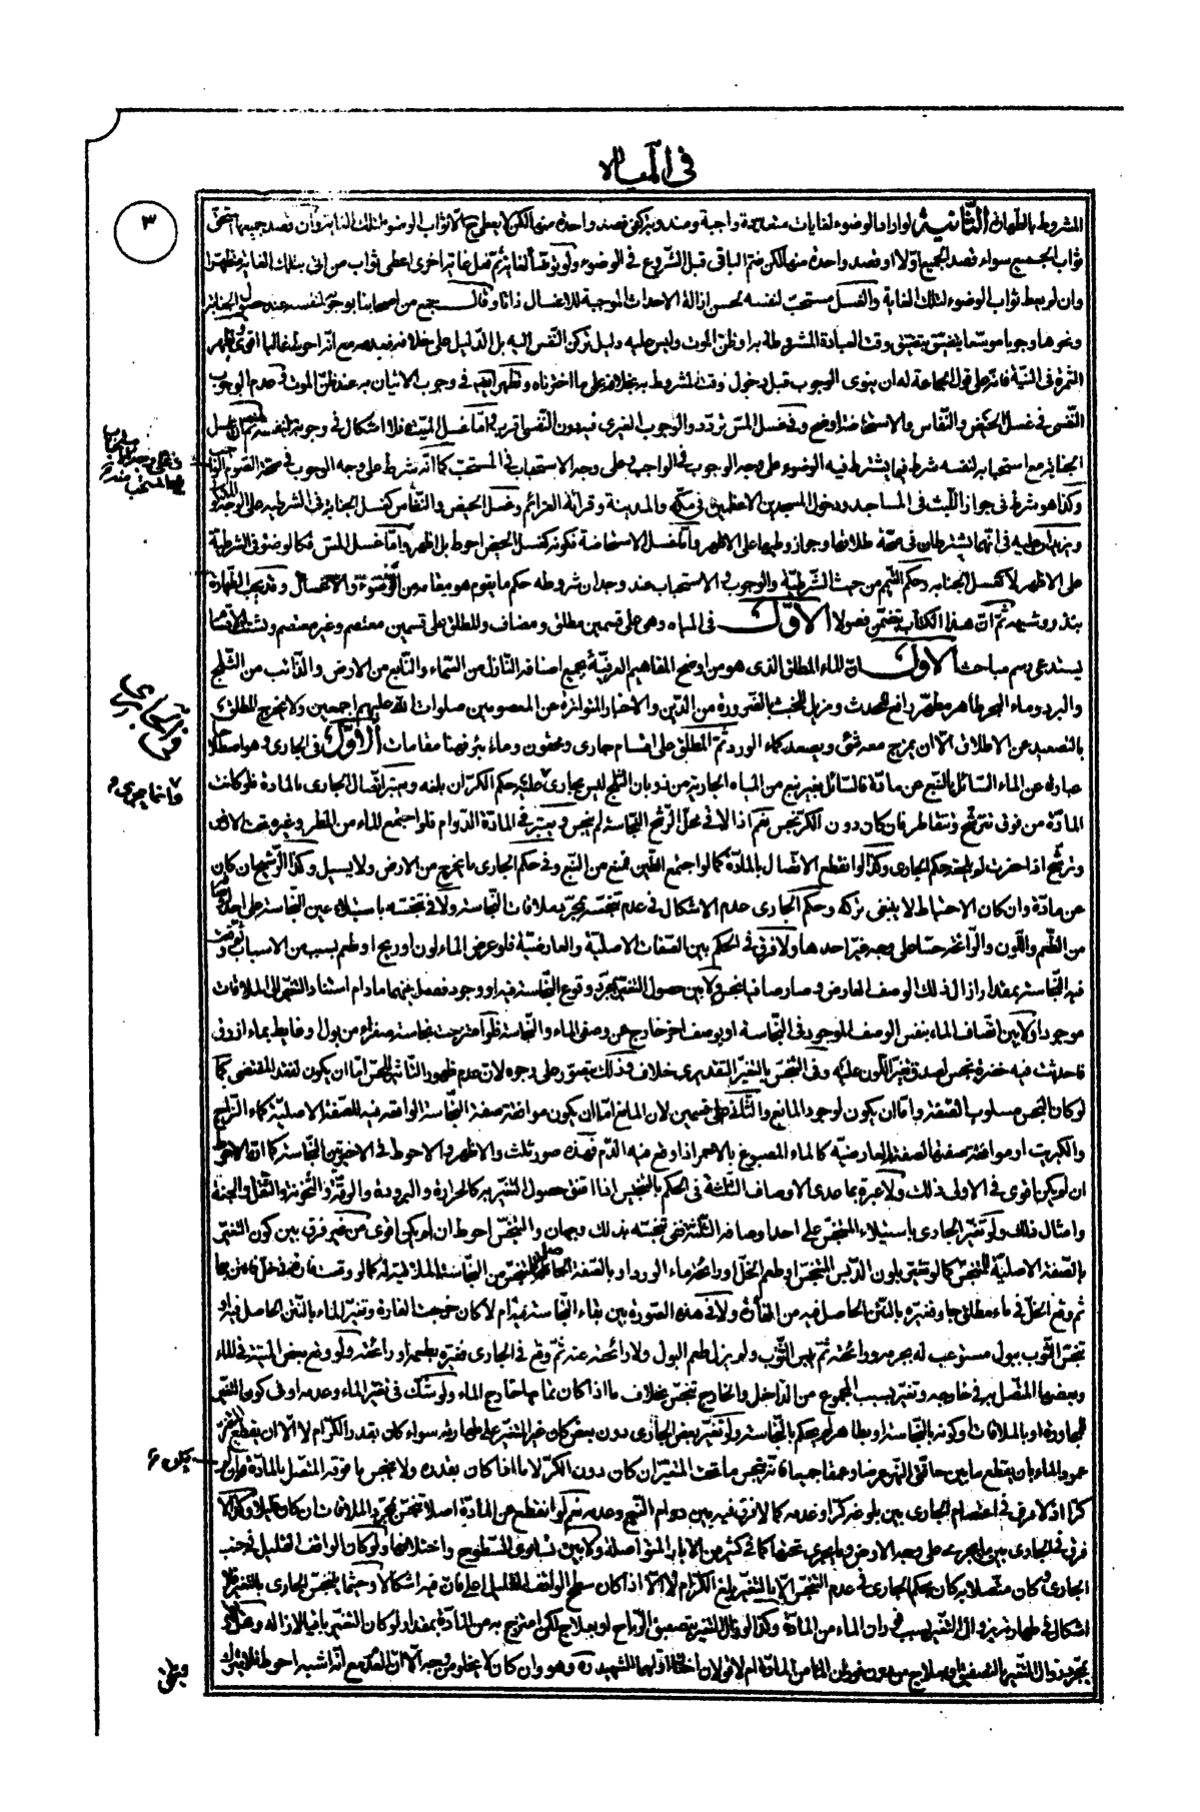 في المياه
٣
المشروط بالطهارة الثانية لو اراد الوضوء لغايات متعددة واجبة ومندوبة كفى قصد واحدة منها لكن لا يعطى الا ثواب الوضوء لتلك الغاية وان قصد جميعها استحق
ثواب الجميع سواء قصد الجميع اولا او قصد واحدة منها لكن ضم الباقى قبل الشروع في الوضوء ولو توضأ لغاية ثم فعل غاية اخرى اعطى ثواب من اتى بتلك الغاية متطهرا
وان لم يعط ثواب الوضوء لتلك الغاية والغسل مستحب لنفسه يحسن ازالة الاحداث الموجبة للاغسال ذاتا وقال جمع من اصحابنا بوجوبه لنفسه عند حصول الجنابة
ونحوها وجوبا موسعا يتضيق بتضيق وقت العبادة المشروطة به او ظن الموت وليس عليه دليل تركن النفس اليه بل الدليل على خلافه
الثمرة في النية فانه على قول الجماعة له ان ينوى الوجوب قبل دخول وقت المشروط به بخلافه على ما اخترناه وتظهر ايضا في وجوب الاتيان به عند ظن الموت في عدم الوجوب
النفسى في غسل الحيض والنفاس والاستحاضة اوضح وفي غسل المس تردد والوجوب الغيرى فيه دون النفسى قريب واما غسل الميت فلا اشكال في وجوبه لنفسه
الجنابة مع استحبابه لنفسه شرط فيما يشترط فيه الوضوء على وجه الوجوب في الواجب وعلى وجه الاستحباب في المستحب كما انه شرط على وجه الوجوب في صحة الصوم
وكذا هو شرط في جواز اللبث في المساجد ودخول المسجدين الاعظمين في مكة والمدينة وقرائة العزائم وغسل الحيض والنفاس كغسل الجنابة في الشرطية على الوجه المذكور
ويزيدان عليه في انهما يشترطان في صحة طلاقها وجواز وطيها على الاظهر واما غسل الاستحاضة فكونه كغسل الحيض احوط بل اظهر واما غسل المس فكالوضوء في الشرطية
على الاظهر لا كغسل الجنابة وحكم التيمم من حيث الشرطية والوجوب والاستحباب عند وجدان شروطه حكم ما يقوم هو مقامه من الوضوء والاغتسال وقد يجب الطهارة
بنذر وشبهه ثم ان هذا الكتاب يتضمن فصولا الاول في المياه وهى على قسمين مطلق ومضاف وللمطلق على قسمين معتصم وغير معتصم
يستدعى رسم مباحث الاول ان الماء المطلق الذى هو من اوضح المفاهيم العرفية بجميع اصنافه النازل من السماء والنابع من الارض والذائب من الثلج
والبرد وماء البحر طاهر مطهر رافع للحدث ومزيل للخبث بالضرورة من الدين والاخبار المتواترة عن المعصومين صلوات الله عليهم اجمعين ولا يخرج المطلق
بالتصعيد عن الاطلاق الا ان يمزج معه شئ ويصعد كماء الورد ثم المطلق على اقسام جارى ومحقون وماء بئر فهنا مقامات الاول في الجارى وهو اصطلاحا
عبارة عن الماء السائل بالنبع عن مادة فالسائل بغير نبع من المياه الجارية من ذوبان الثلج ليس بجارى حكم الكر ان بلغه ويعتبر اتصال الجارى بالمادة فلو كانت
المادة من فوق تترشح وتتقاطر فان كان دون الكر نجس نعم اذا لاقى محل الرشح النجاسة لم ينجس ويعتبر في المادة الدوام فلو اجتمع الماء من المطر وغيره تحت الارض
وترشح اذا حفرت لم يلحقه حكم الجارى وكذا لو انقطع الاتصال بالمادة كما لو اجتمع الطين فمنع من النبع وفي حكم الجارى ما يخرج من الارض ولا يسيل وكذا الرشح ان كان
عن مادة وان كان الاحتياط لا ينبغى تركه وحكم الجارى عدم الاشكال في عدم تنجسه بمجرد ملاقات النجاسة ولا في تنجسه باستيلاء عين النجاسة على احد
من الطعم واللون والرائحة حسا على وجه غير احدها ولا فرق في الحكم بين الصفات الاصلية والعارضية فلو عرض الماء لون او ريح او طعم بسبب من الاسباب ثم وقعت
فيه النجاسة بمقدار ازال ذلك الوصف العارض وصار صافيا نجس ولا بين حصول التغير بمجرد وقوع النجاسة فيه او وجود فصل بينهما ما دام استناد التغير الى الملاقات
موجودا ولا بين اتصاف الماء بنفس الوصف الموجود في النجاسة او بوصف اخر خارج عن وصفى الماء والنجاسة فلو امتزجت نجاسة صفراء من بول وغايط بماء ازرق
فاحدثت فيه خضرة نجس لصدق تغير اللون عليه وفي التنجس بالتغير التقديرى خلاف وذلك يتصور على وجوه لان عدم ظهور التاثير للحس اما ان يكون لفقد المقتضى كما
لو كان النجس مسلوب الصفة واما ان يكون لوجود المانع والثانى على قسمين لان المانع اما ان يكون موافقة صفة النجاسة الواقعة فيه للصفة الاصلية كماء الزاج
والكبريت او موافقته بصفتها لصفة العارضية كالماء المصبوغ بالاحمر اذا وقع فيه الدم فهذه صور ثلث والاظهر والاحوط في الاخيرتين النجاسة كما ان الاحوط
ان لم يكن اقوى في الاولى ذلك ولا عبرة بما عدى الاوصاف الثلثة في الحكم بالتنجيس اذا اتفق حصول التغير به كالحرارة والبرودة والرقة والثخونة والثقل والخفة
وامثال ذلك ولو تغير الجارى باستيلاء المتنجس على احد اوصافه الثلثة ففى تنجسه بذلك وجهان والتنجس احوط ان لم يكن اقوى من غير فرق بين كون التغير
بالصفة الاصلية للمتنجس كما لو تغير بلون الدبس المتنجس او طعم الخل او رائحة ماء الورد او بالصفة الحاصلة للمتنجس من النجاسة الملاقية له كما لو وقعت فارة في خل فانتن بها
ثم وقع الخل في ماء مطلق جار فغيره بالنتن الحاصل فيه من الفارة ولا في هذه الصورة بين بقاء النجاسة فيه ام لا كان خرجت الفارة وتغير الماء بالنتن الحاصل فيه او
تنجس الثوب ببول مستوعب له بجرمه ورائحته ثم يبس الثوب ولم يزل طعم البول ولا رائحته عنه ثم وقع في الجارى فغيره بطعمه او رائحته ولو وقع بعض الميتة في الماء
وبعضها المتصل به في خارجه وتغير بسبب المجموع من الداخل والخارج تنجس بخلاف ما اذا كان تمامها خارج الماء ولو شك في تغير الماء وعدمه او في كون التغير
للمجاورة او بالملاقات وكونه بالنجاسة او بطاهر لم يحكم بالنجاسة ولو تغير بعض الجارى دون بعض كان غير المتغير على طهارته سواء كان بقدر الكر ام لا الا ان يقطع التغير
عمود الماء بان يقطع ما بين حافتى النهر عرضا وعمقا جميعا فانه ينجس ما تحت المتغير ان كان دون الكر لا ما اذا كان بقدره ولا ينجس ما فوقه المتصل بالمادة وان لم
كرا اذ لا فرق في اعتصام الجارى بين بلوغه كرا وعدمه كما لا فرق فيه بين دوام النبع وعدمه نعم لو انقطع عن المادة اصلا تنجس بمجرد الملاقات ان كان قليلا وكذا لا
فرق في الجارى بين ما يجرى على وجه الارض وما يجرى تحتها كما في كثير من الابار المتواصلة ولا بين تساوى السطوح واختلافها ولو كان الواقف القليل في جنب
الجارى وكان متصلا به كان بحكم الجارى في عدم التنجس الا بالتغير بلغ الكر ام لا الا اذا كان سطح الواقف القليل اعلى فان فيه اشكالا وحيثما تنجس الجارى بالتغير فلا
اشكال في طهارته بزوال التغير بسبب جريان الماء من المادة وكذا لو زال التغير بتصفيق الرياح او بعلاج لكن امتزج به من المادة بمقدار لو كان التغير باقيا لازاله
بمجرد زوال التغير بالتصفيق او بعلاج من دون الماء من المادة ام لا قولان اختار اولهما الشهيد ره وهو وان كان لا يخلو من وجه الا ان العدم مع انه اشبه احوط فلا يترك
في الجارى
وانما يجرى
يكن